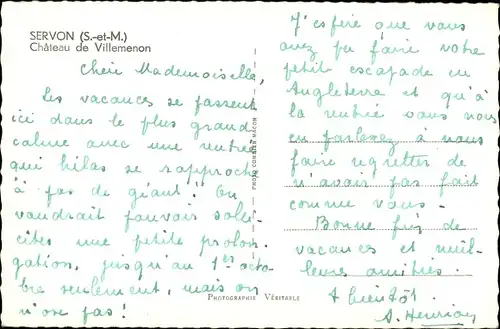 SERVON (S.-et-M.)
Château de Villemenon
Chère Mademoiselle,
Les vacances se passent
ici dans le plus grand
calme avec une rentrée
qui hélas se rapproche
à pas de géant! On
voudrait pouvoir solli-
citer une petite prolon-
gation, jusqu'au 1er octo-
bre seulement, mais on
n'ose pas!
PHOTO COMBIER MACON
PHOTOGRAPHIE VÉRITABLE
J'espère que vous
avez pu faire votre
petit escapade en
Angleterre et qu'à
la rentrée vous nous
en parlerez à nous
faire regretter de
n'avoir pas fait
comme vous.
Bonne fin de
vacances et meil-
leures amitiés.
A bientôt.